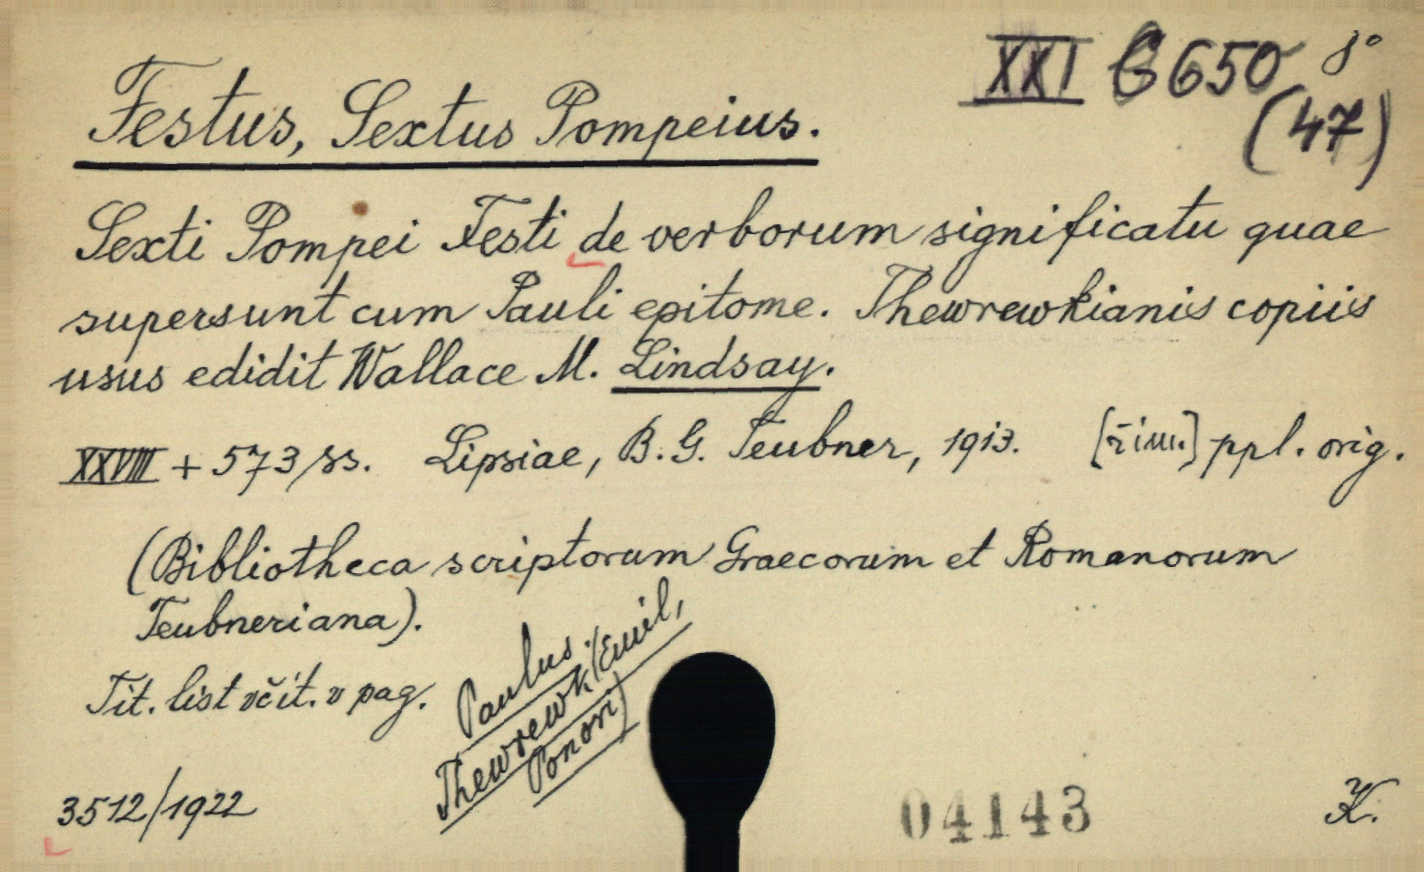 XXI G 650 8°
(47)
Festus, Sextus Pompeius.
Sexti Pompei Festi de verborum significatu quae
supersunt cum Pauli epitome. Thewrewkianis copiis
usus edidit Wallace M. Lindsay.
XXVIII + 573 ss. Lipsiae, B. G. Teubner, 1913. [řím.] ppl. orig.
(Bibliotheca scriptorum Graecorum et Romanorum
Teubneriana).
Tit. list včít. v pag.
Paulus.
Thewrewk (Emil,
Ponori)
3512/1922
04143
K.